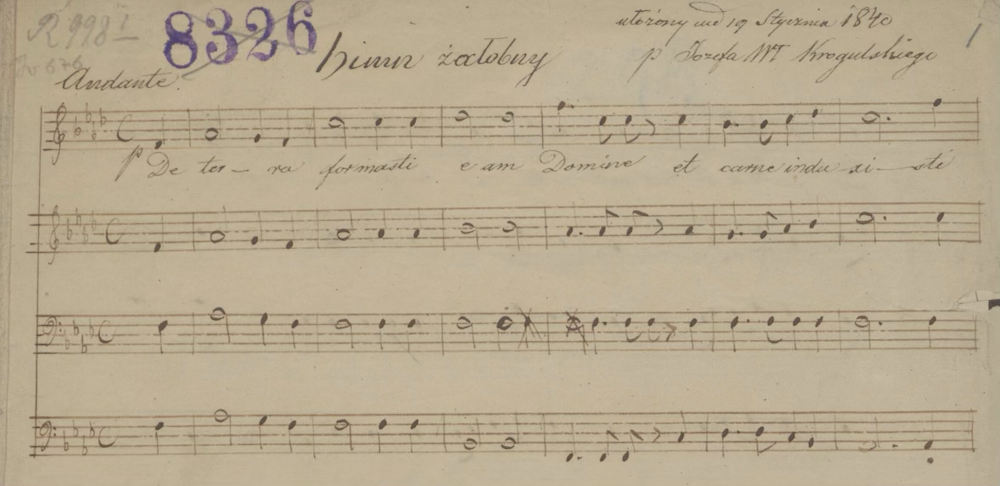 R 998 I
8326
ułożony wd 19 Stycznia 1840
himn żałobny
p Józefa Wł Krogulskiego
Andante.
p De ter – ra formasti e am Domine et carne indu – xi – sti